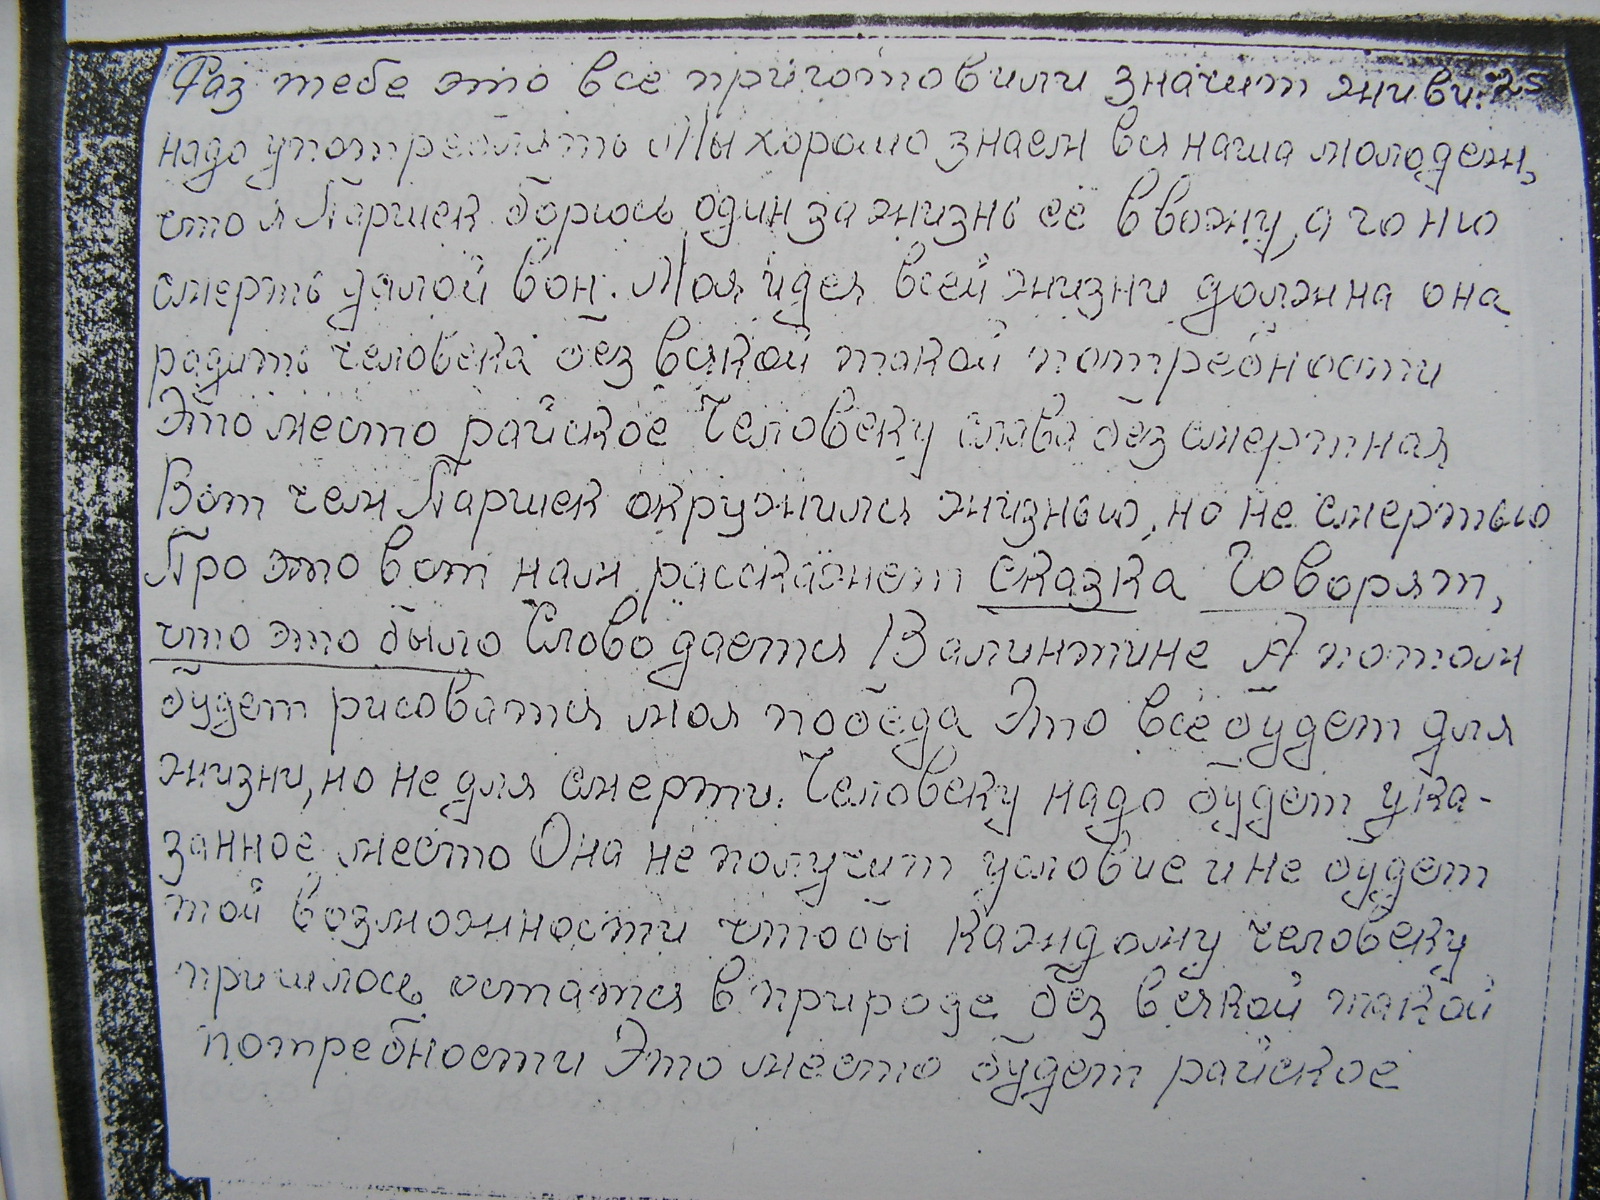 Раз тебе это все приготовили значит живи. 25
надо употреблять Мы хорошо знаем вся наша молодежь,
что я Паршек борюсь один за жизнь её ввожу, а гоню
смерть далой вон. Моя идея всей жизни должна она
радить человека без всякой такой потребности
Это место райское Человеку слава безсмертная
Вот чем Паршек окружился жизнью, но не смертью
Про это вот нам расскажет сказка Говорят,
что это было Слово дается Валинтине А потом
будет рисоватся моя победа Это всё будет для
жизни, но не для смерти. Человеку надо будет ука-
занное место Она не получит условие и не будет
той возможности чтобы каждому человеку
пришлось остатся в природе без всякой такой
потребности Это место будет райское